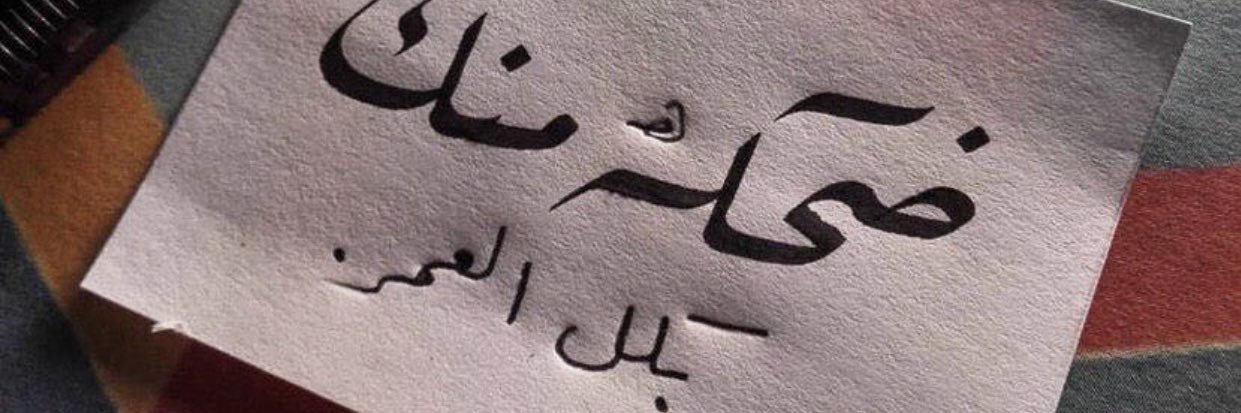 ضحكة منك
بكل العمر.